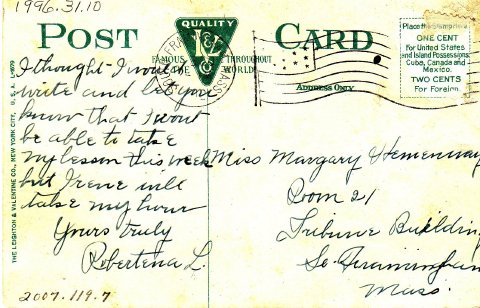 1996.31.10
POST CARD
QUALITY
L&V
FAMOUS THROUGHOUT
WORLD
FRA
MASS
Place the Stamp Here
ONE CENT
for United States
and Island Possessions,
Cuba, Canada and
Mexico.
TWO CENTS
For Foreign.
ADDRESS ONLY
THE LEIGHTON & VALENTINE CO., NEW YORK CITY, U.S.A.
I thought I would
write and let you
know that I wont
be able to take
my lesson this week
but Irene will
take my hour
Yours truly
Robertena L.
Miss Margary Hemenway
Room 21
Tribune Building
So. Framingham
Mass.
2007.119.7